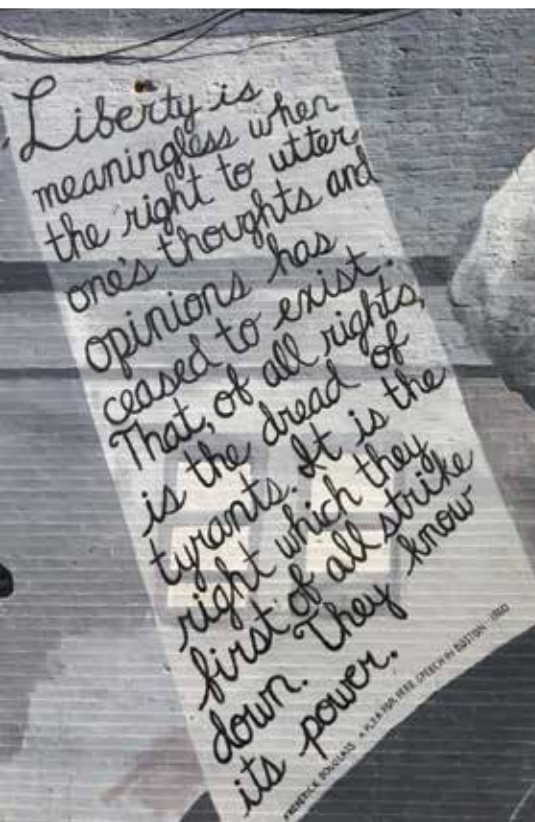 Liberty is
meaningless when
the right to utter
one's thoughts and
opinions has
ceased to exist.
That, of all rights,
is the dread of
tyrants. It is the
right which they
first of all strike
down. They know
its power.
FREDERICK DOUGLASS A PLEA FOR FREE SPEECH IN BOSTON - 1860